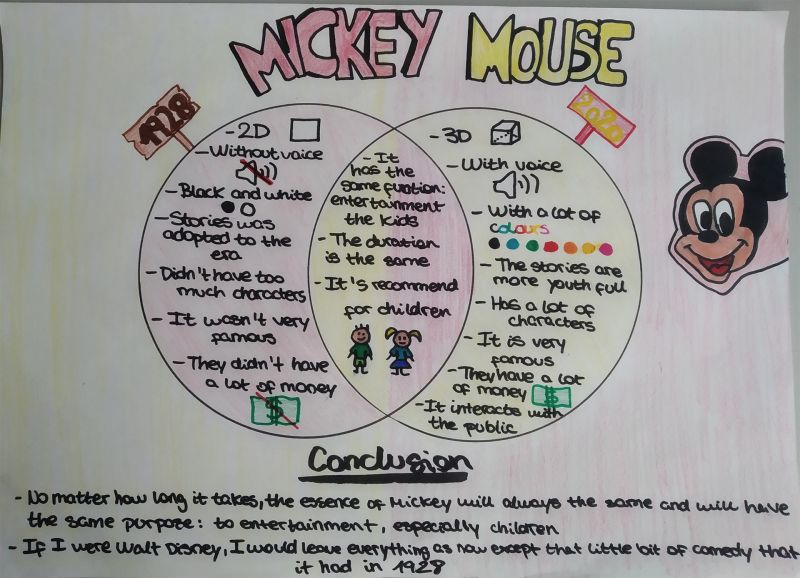 MICKEY MOUSE
1928
- 2D
- Without voice
- Black and white
- Stories was
adopted to the
era
- Didn't have too
much characters
- It wasn't very
famous
- They didn't have
a lot of money
$
- It
has the
same function:
entertainment
the kids
- The duration
is the same
- It's recommend
for children
2020
- 3D
- With voice
- With a lot of
colours
- The stories are
more youth full
- Has a lot of
characters
- It is very
famous
- They have a lot
of money
$
- It interacts with
the public
Conclusion
- No matter how long it takes, the essence of Mickey will always the same and will have
the same purpose: to entertainment, especially children
- If I were Walt Disney, I would leave everything as now except that little bit of comedy that
it had in 1928